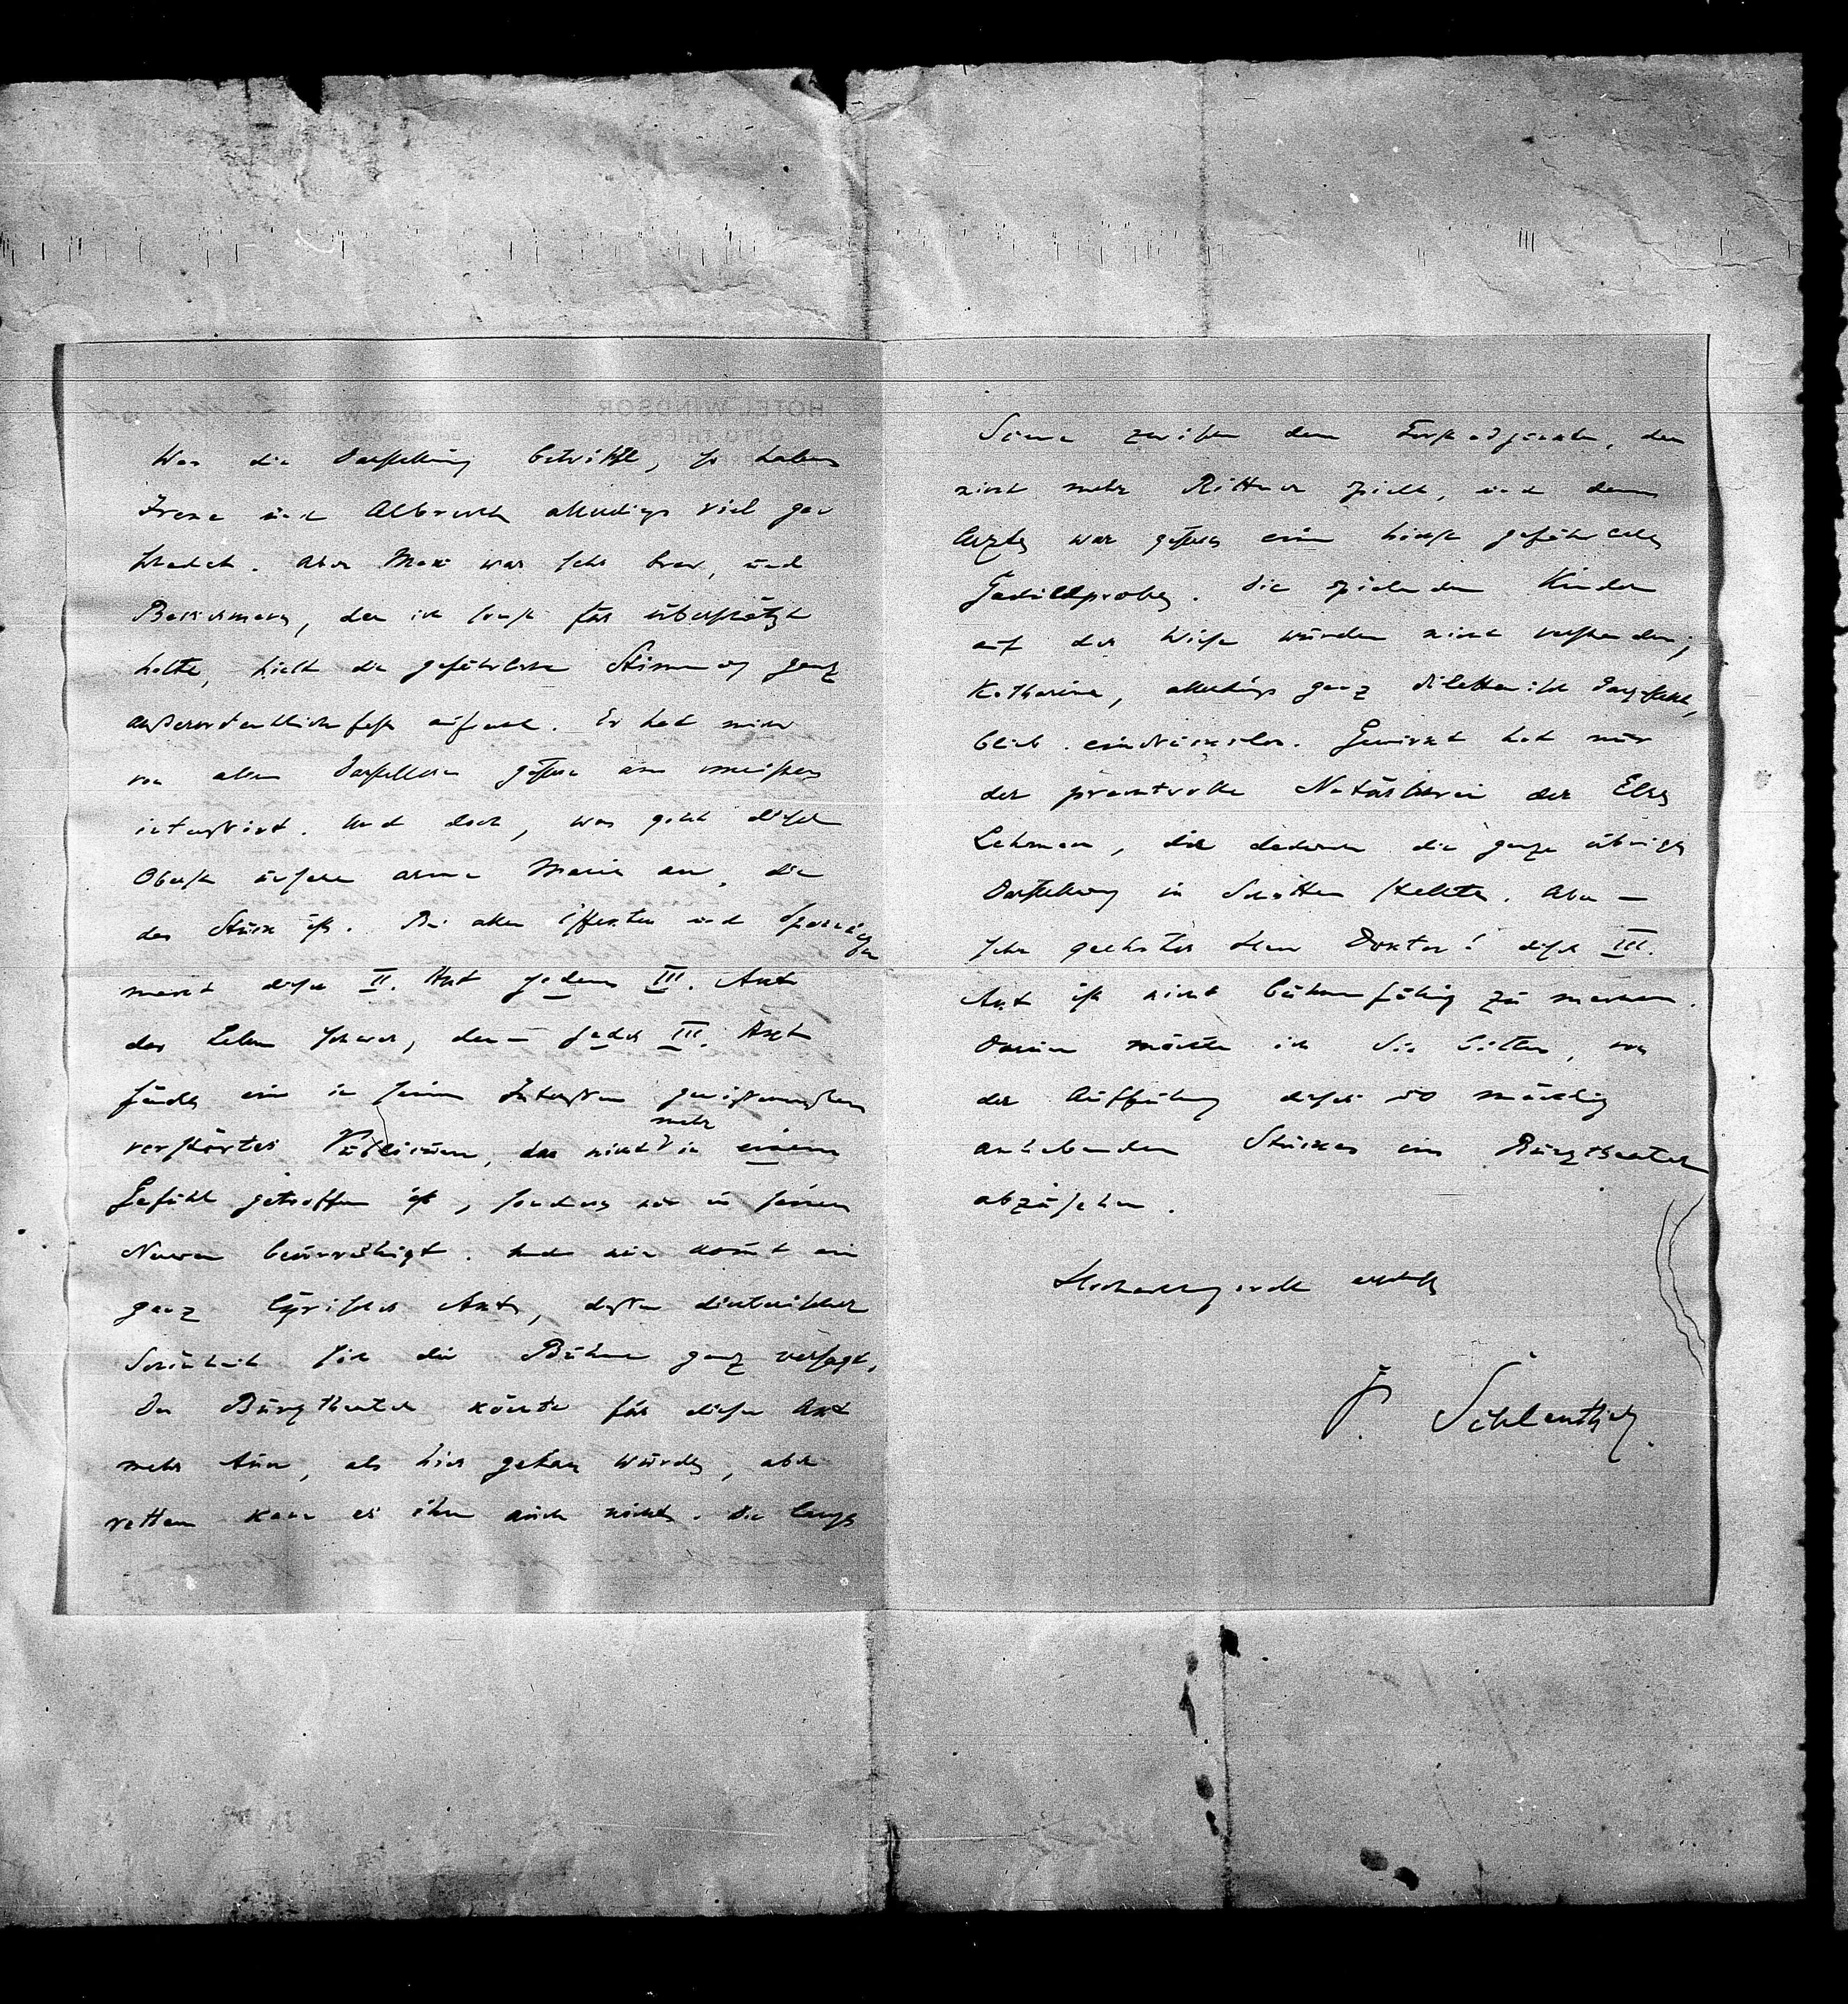 Was die Darstellung betrifft, so haben
Irene und Albrecht allerdings viel ge-
schadet. Aber Max war sehr brav, und
Bassermann, den ich sonst für überschätzt
halte, hielt die gefährliche Stimmung ganz
außerordentlich fest aufrecht. Er hat mich
von allen Darstellern gestern am meisten
interessirt. Und doch, was geht dieser
Oberst unsere arme Marie an, die
das Stück ist. Bei allen Effekten und Sprüngen
macht dieser II. Akt jedem III. Akt
das Leben schwer, denn jeder III. Akt
fände ein in seinen Intressen gewissermaßen
verstörtes Publicum, das nicht mehr in einem
Gefühl getroffen ist, sondern nur in seinen
Nerven beunruhigt. Und nun kommt ein
ganz lyrischer Akt, dessen dichterische
Schönheit für die Bühne ganz versagt.
Das Burgtheater könnte für diesen Akt
mehr tun, als hier getan wurde, aber
retten kann es ihn auch nicht. Die lange
Scene zwischen dem Forstadjunkten, den
nicht mehr Rittner spielt, und dem
Arzte war gestern eine höchst gefährliche
Geduldprobe. Die spielenden Kinder
auf der Wiese wurden nicht verstanden;
Katharina, allerdings ganz dilettantisch dargestellt,
blieb eindruckslos. Gewirkt hat nur
die prachtvolle Natürlichkeit der Else
Lehmann, die dadurch die ganze übrige
Darstellung in Schatten stellte. Aber –
sehr geehrter Herr Doktor! dieser III.
Akt ist nicht bühnenfähig zu machen.
Darum möchte ich Sie bitten, von
der Aufführung dieses so mächtig
anhebenden Stückes im Burgtheater
abzusehen.
Hochachtungsvoll ergebenst
P. Schlenther.
HOTEL WINDSOR